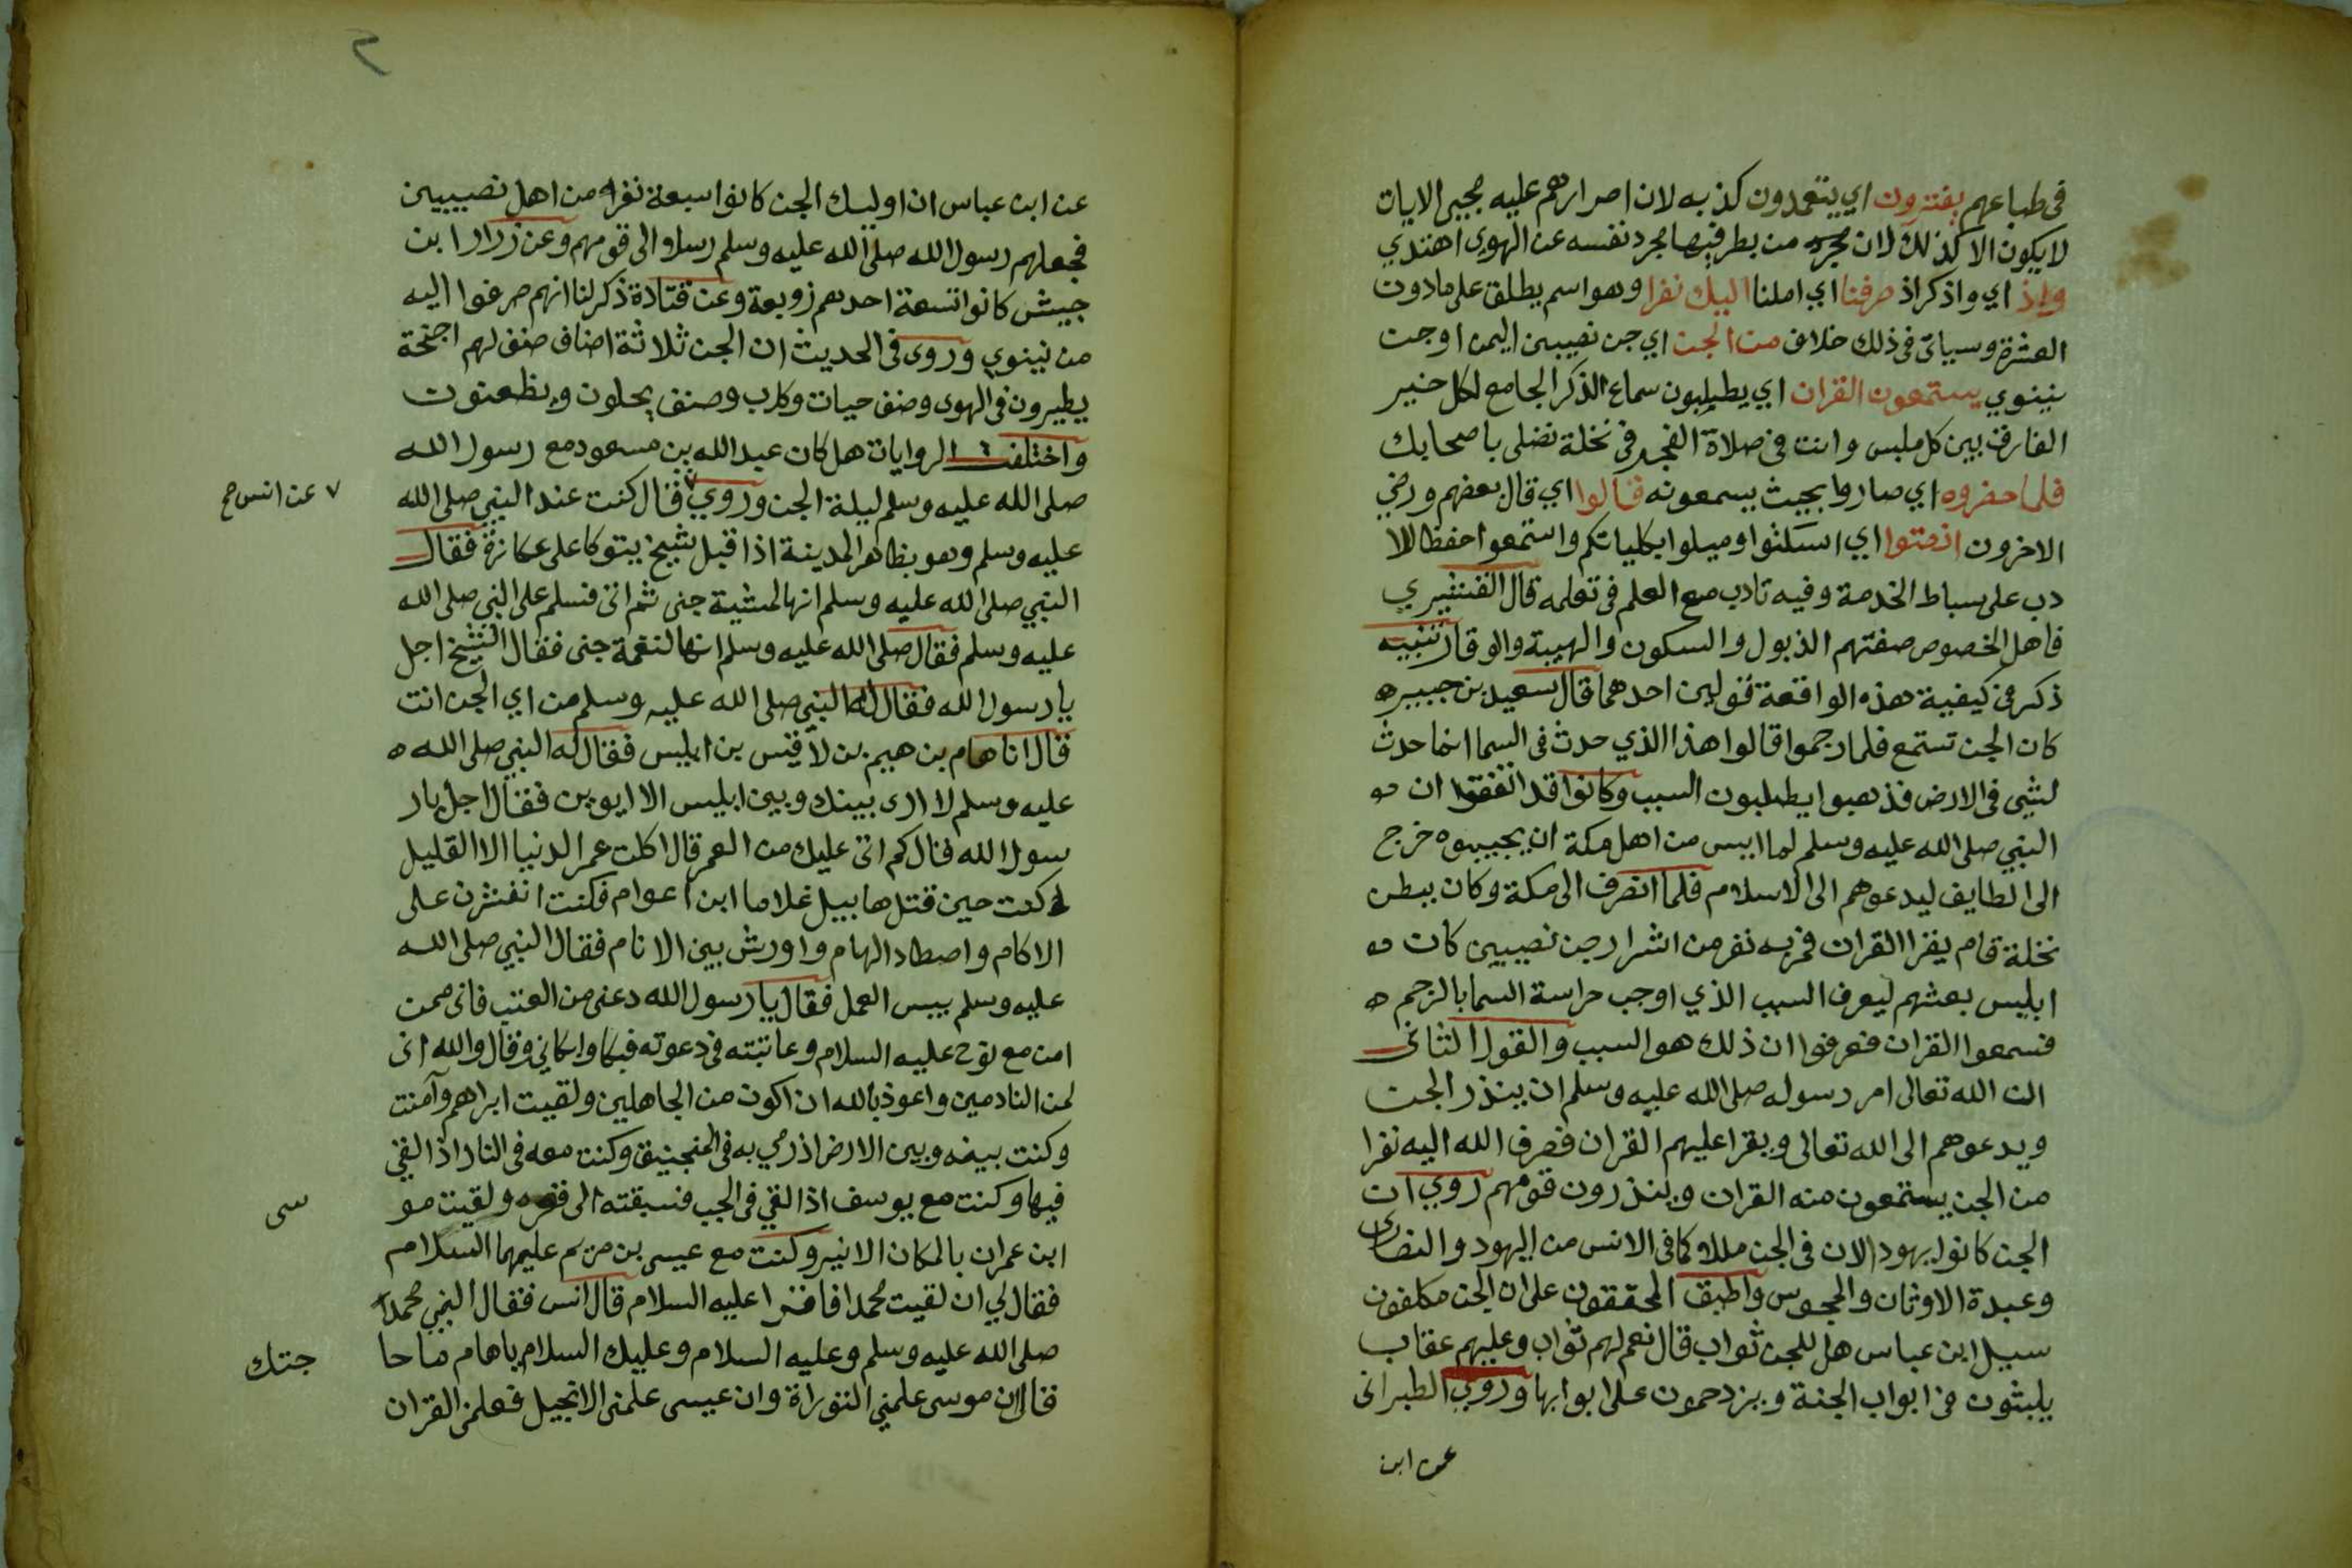 في طباعهم يفترون اي يتعمدون كذبه لان اصرارهم عليه مجيئ الايات
لا يكون الا كذلك لان من نظر فيها مجرد نفسه عن الهوى اهتدي
واذ اي واذكر اذ صرفنا اي املنا اليك نفرا وهو اسم يطلق على ما دون
العشرة وسياتي في ذلك خلاف من الجن اي جن نصيبين اليمن او جن
نينوي يستمعون القران اي يطلبون سماع الذكر الجامع لكل خير
الفارق بين كل ملبس وانت في صلاة الفجر في نخلة تصلى باصحابك
فلما حضروه اي صاروا بحيث يسمعونه قالوا اي قال بعضهم ورضي
الاخرون انصتوا اي اسكتوا وميلوا بكلياتكم واستمعوا حفظا للا
دب على بساط الخدمة وفيه تادب مع العلم في تعلمه قال القشيري
فاهل الخصوص صفتهم الذبول والسكون والهيبة والوقار تنبيه
ذكر في كيفية هذه الواقعة قولين احدهما قال سعيد بن جبير ه
كان الجن تستمع فلما رجموا قالوا هذا الذي حدث في السما انما حدث
لشي في الارض فذهبوا يطلبون السبب وكانوا قد اتفقوا ان
النبي صلى الله عليه وسلم لما ايس من اهل مكة ان يجيبوه خرج
الى الطايف ليدعوهم الى الاسلام فلما انصرف الى مكة وكان ببطن
نخلة قام يقرا القران فمر به نفر من اشرار جن نصيبين كان
ابليس بعثهم ليعرف السبب الذي اوجب حراسة السما بالرجم ه
فسمعوا القران فعرفوا ان ذلك هو السبب والقول الثانى
ان الله تعالى امر رسوله صلى الله عليه وسلم ان ينذر الجن
ويدعوهم الى الله تعالى ويقرا عليهم القران فصرف الله اليه نفرا
من الجن يستمعون منه القران وينذرون قومهم روي ان
الجن كانوا يهود الان في الجن مللا كما في الانس من اليهود والنصارى
وعبدة الاوثان والمجوس واطبق المحققون على ان الجن مكلفون
سيل ابن عباس هل للجن ثواب قال نعم لهم ثواب وعليهم عقاب
يلبثون في ابواب الجنة ويزدحمون على ابوابها وروي الطبرانى
عن ابن
٢
عن ابن عباس ان اوليك الجن كانوا سبعة نفر من اهل نصيبين
فجعلهم رسول الله صلى الله عليه وسلم رسلا الى قومهم وعن زرار ابن
حبيش كانوا تسعة احدهم زوبعة وعن قتادة ذكر لنا انهم صرفوا اليه
من نينوي وروى في الحديث ان الجن ثلاثة اصناف صنف لهم اجنحة
يطيرون في الهوى وصنف حيات وكلاب وصنف يحلون ويظعنون
واختلفت الروايات هل كان عبد الله بن مسعود مع رسول الله
صلى الله عليه وسلم ليلة الجن وروي ٧ قال كنت عند النبي صلى الله
٧ عن انس صح
عليه وسلم وهو بظاهر المدينة اذ اقبل شيخ يتوكا على عكازة فقال
النبي صلى الله عليه وسلم انها لمشية جنى ثم اتى فسلم على النبي صلى الله
عليه وسلم فقال صلى الله عليه وسلم انها لنغمة جنى فقال الشيخ اجل
يا رسول الله فقال له النبي صلى الله عليه وسلم من اي الجن انت
قال انا هام بن هيم بن لاقيس بن ابليس فقال له النبي صلى الله ه
عليه وسلم لا ارى بينك وبين ابليس الا ابوين فقال اجل يار
سول الله قال كم اتى عليك من العمر قال اكلت عمر الدنيا الا القليل
كنت حين قتل هابيل غلاما ابن اعوام فكنت على
الاكام واصطاد الهام واورش بين الانام فقال النبي صلى الله
عليه وسلم بيس العمل فقال يا رسول الله دعنى من العتب فانى ممن
امن مع نوح عليه السلام وعاتبته في دعوته فبكا وابكاني وقال والله انى
لمن النادمين واعوذ بالله ان اكون من الجاهلين ولقيت ابراهم وآمنت
وكنت بينه وبين الارض اذ رمي به في المنجنيق وكنت معه في النار اذ القي
فيها وكنت مع يوسف اذ القي في الجب فسبقته الى قعره ولقيت مو
سى
ابن عمران بالمكان الاثير وكنت مع عيسى بن مريم عليهما السلام
فقال لي ان لقيت محمدا فاقرا عليه السلام قال انس فقال النبي محمد
صلى الله عليه وسلم وعليه السلام وعليك السلام ياهام ما حا
جتك
قال ان موسى علمني التوراة وان عيسى علمنى الانجيل فعلمنى القران